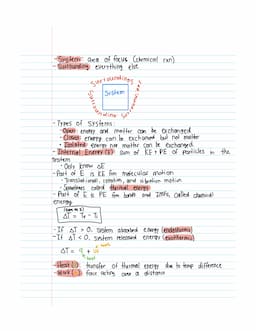 - System: area of focus (chemical rxn)
- Surrounding: everything else
Surroundings
Surroundings
Surroundings
System
- Types of Systems
- Open: energy and matter can be exchanged
- Closed: energy can be exchanged but not matter
- Isolated: energy nor matter can be exchanged
- Internal Energy (E): sum of KE + PE of particles in the
system
- Only know ΔE
- Part of E is KE for molecular motion
- Translational, rotation, and vibration motion
- Sometimes called thermal energy
- Part of E is PE for bonds and IMFs, called chemical
energy
ΔE = Ef - Ei
- If ΔE > 0, system absorbed energy (endothermic)
- If ΔE < 0, system released energy (exothermic)
ΔE = q + w
heat
work
- Heat ( ): transfer of thermal energy due to temp difference
- Work ( ): force acting over a distance